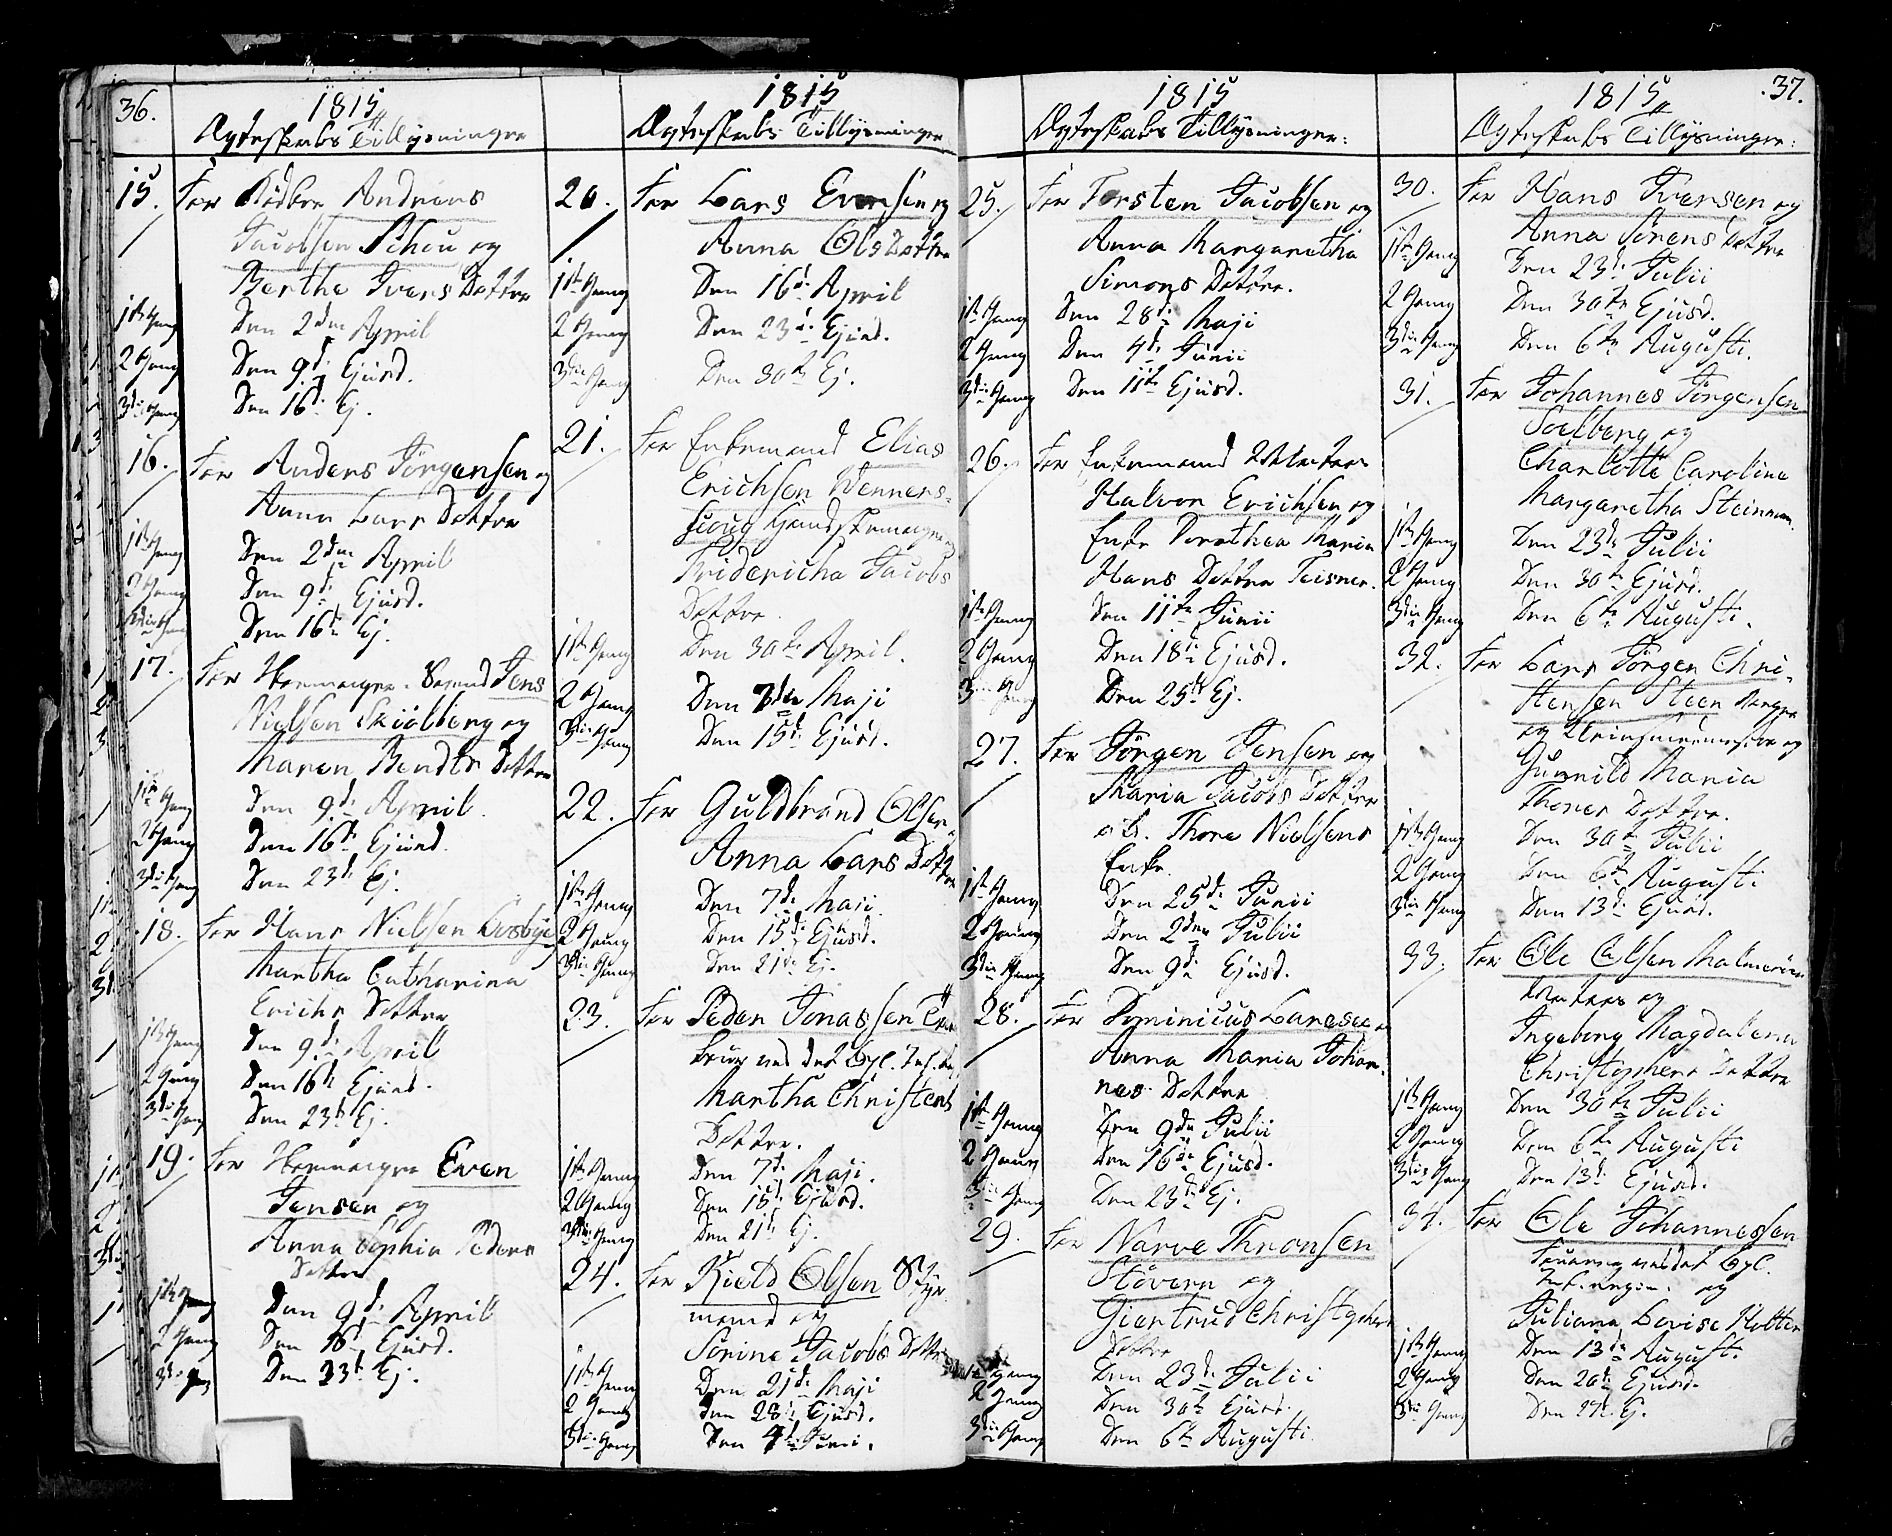 36.
1815
Ægteskabs Tillysninger
15. For Andreas
Jacobsen Schou og
Berthe Ivers Datter
1ste Gang Den 2den April
2 Gang Den 9de Ejusd.
3die Gang Den 16de Ej.
16. For Anders Jörgensen og
Anna Lars Datter
1ste Gang Den 2den April
2 Gang Den 9de Ejusd.
3die Gang Den 16de Ej.
17. For Jens
Nielsen Skiölberg og
Maren Bendts Datter
1ste Gang Den 9de April
2 Gang Den 16de Ejusd.
3die Gang Den 23de Ej.
18. For Hans Nielsen
Martha Catharina
Erichs Datter
1ste Gang Den 9de April
2 Gang Den 16de Ejusd.
3die Gang Den 23de Ej.
19. For Even
Jensen og
Anna Sophia Peders
Datter
1ste Gang Den 9de April
2 Gang Den 16de Ejusd.
3die Gang Den 23de Ej.
1815
Ægteskabs Tillysninger
20. For Lars Evensen og
Anna Ols Datter
1ste Gang Den 16de April
2 Gang Den 23de Ejusd.
3die Gang Den 30te Ej.
21. For Enkemand Elias
Erichsen Wenners-
Fridericha Jacobs
Datter
1ste Gang Den 30te April.
2 Gang Den 7de Maji
3die Gang Den 15de Ejusd.
22. For Guldbrand Olsen
Anna Lars Datter
1ste Gang Den 7de Maji
2 Gang Den 15de Ejusd.
3die Gang Den 21de Ej.
23. For Peder Jonassen
Martha Christens
Datter.
1ste Gang Den 7de Maji.
2 Gang Den 15de Ejusd.
3die Gang Den 21de Ej.
24. For Kield Olsen Styr
mand og
Sorine Jacobs Datter
1ste Gang Den 21de Maji
2 Gang Den 28de Ejusd.
3die Gang Den 4de Junii.
1815
Ægteskabs Tillysninger.
25. For Torsten Jacobsen og
Anna Margaretha
Simons Datter.
1ste Gang Den 28de Maji
2 Gang Den 4de Junii
3die Gang Den 11te Ejusd.
26. For Enkemand
Halvor Erichsen og
Enke Dorothea Maria
Hans Datter Teisner.
1ste Gang Den 11te Junii
2 Gang Den 18de Ejusd.
3die Gang Den 25de Ej.
27. For Jörgen Jensen og
Maria Jacobs Datter
Thore Nielsens
Enke.
1ste Gang Den 25de Junii
2 Gang Den 2den Julii
3die Gang Den 9de Ejusd.
28. For Dominicus
Anna Maria Johan-
nes Datter
1ste Gang Den 9de Julii
2 Gang Den 16de Ejusd.
3die Gang Den 23de Ej.
29. For Narve Thronsen
Stövern og
Giertrud Christophers
Datter
1ste Gang Den 23de Julii
2 Gang Den 30te Ejusd.
3die Gang Den 6te Augusti
37.
1815
Ægteskabs Tillysninger.
30. For Hans Iversen og
Anna Sörens Datter
1ste Gang Den 23de Julii
2 Gang Den 30te Ejusd.
3die Gang Den 6te Augusti.
31. For Johannes Jörgensen
Soelberg og
Charlotte Caroline
Margaretha Steinman.
1ste Gang Den 23de Julii
2 Gang Den 30te Ejusd.
3die Gang Den 6te Augusti.
32. For Lars Jörgen Chri-
stensen Steen
Gunnild Maria
Thores Datter.
1ste Gang Den 30te Julii
2 Gang Den 6te Augusti
3die Gang Den 13de Ejusd.
33. For Ole Olsen
og
Ingeborg Magdalena
Christophers Datter
1ste Gang Den 30te Julii
2 Gang Den 6te Augusti
3die Gang Den 13de Ejusd.
34. For Ole Johannessen
og
Juliana Lovise Holter
1ste Gang Den 13de Augusti
2 Gang Den 20de Ejusd.
3die Gang Den 27de Ej.